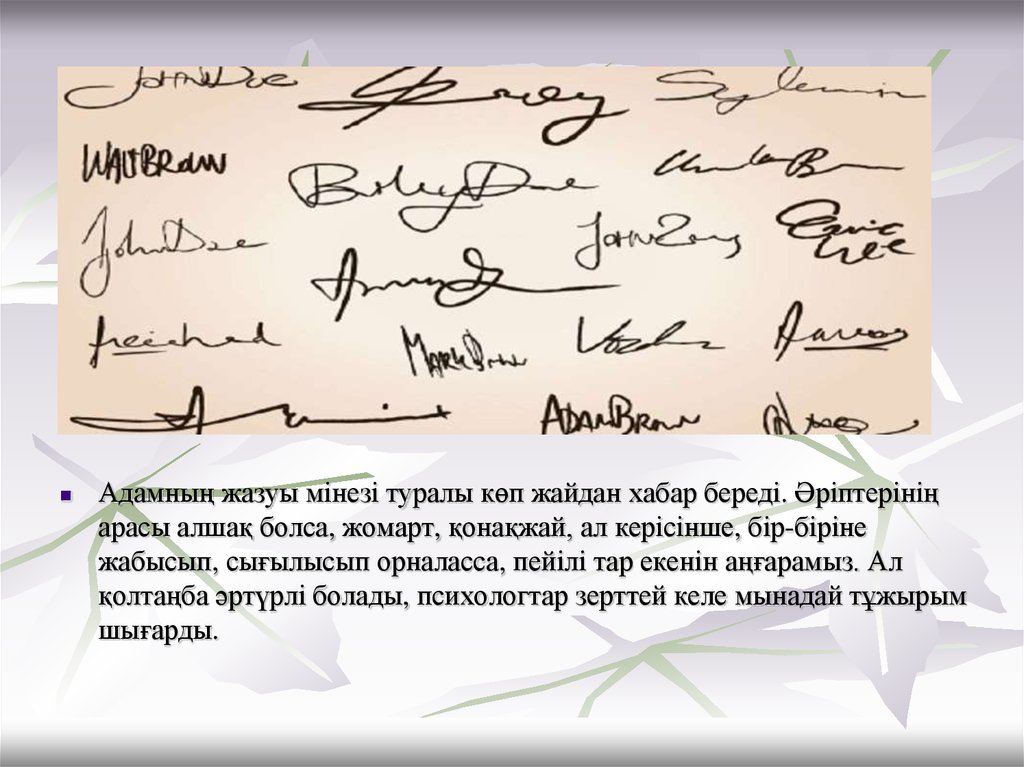 JOHN DOE
WALT BROWN
John Doe
JOHN
MARK
ADAM BROWN
Адамның жазуы мінезі туралы көп жайдан хабар береді. Әріптерінің
арасы алшақ болса, жомарт, қонақжай, ал керісінше, бір-біріне
жабысып, сығылысып орналасса, пейілі тар екенін аңғарамыз. Ал
қолтаңба әртүрлі болады, психологтар зерттей келе мынадай тұжырым
шығарды.